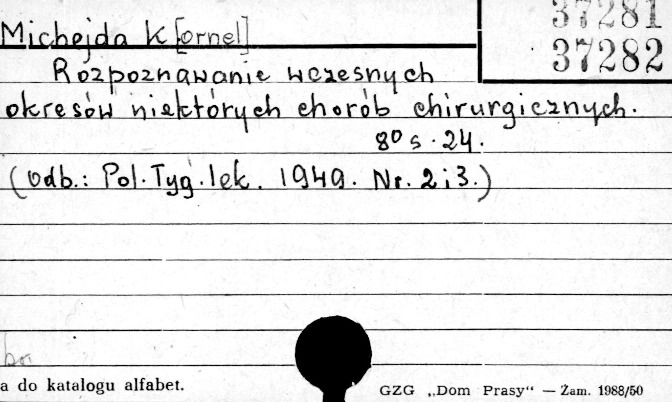 37281
Michejda K [ornel]
37282
Rozpoznawanie wczesnych
okresów niektórych chorób chirurgicznych.
8° s. 24.
(Odb.: Pol. Tyg. lek. 1949. Nr. 2 i 3.)
a do katalogu alfabet.
GZG „Dom Prasy“ — Zam. 1988/50